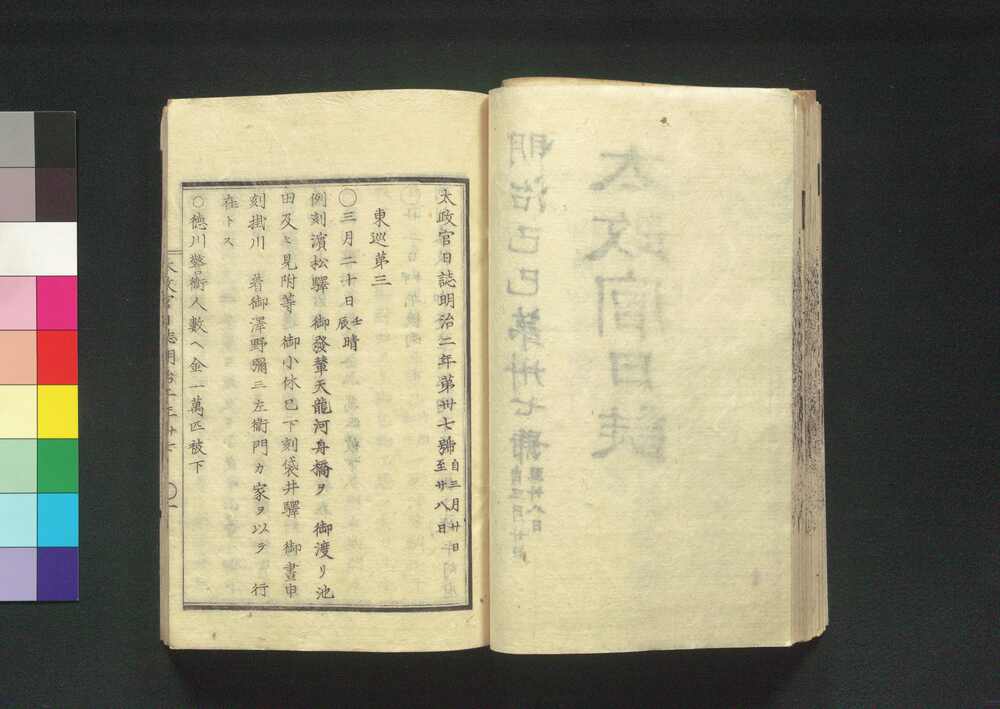 太政官日誌明治二年第卅七號 自三月廿日 至廿八日
東巡第三
〇三月二十日 壬辰 晴
例刻濱松驛 御發輦天龍河舟橋ヲ 御渡リ池
田及ヒ見附等 御小休巳下刻袋井驛 御晝申
刻掛川 著御澤野彌三左衞門カ家ヲ以テ 行
在トス
〇德川警衞人數ヘ金一萬匹被下